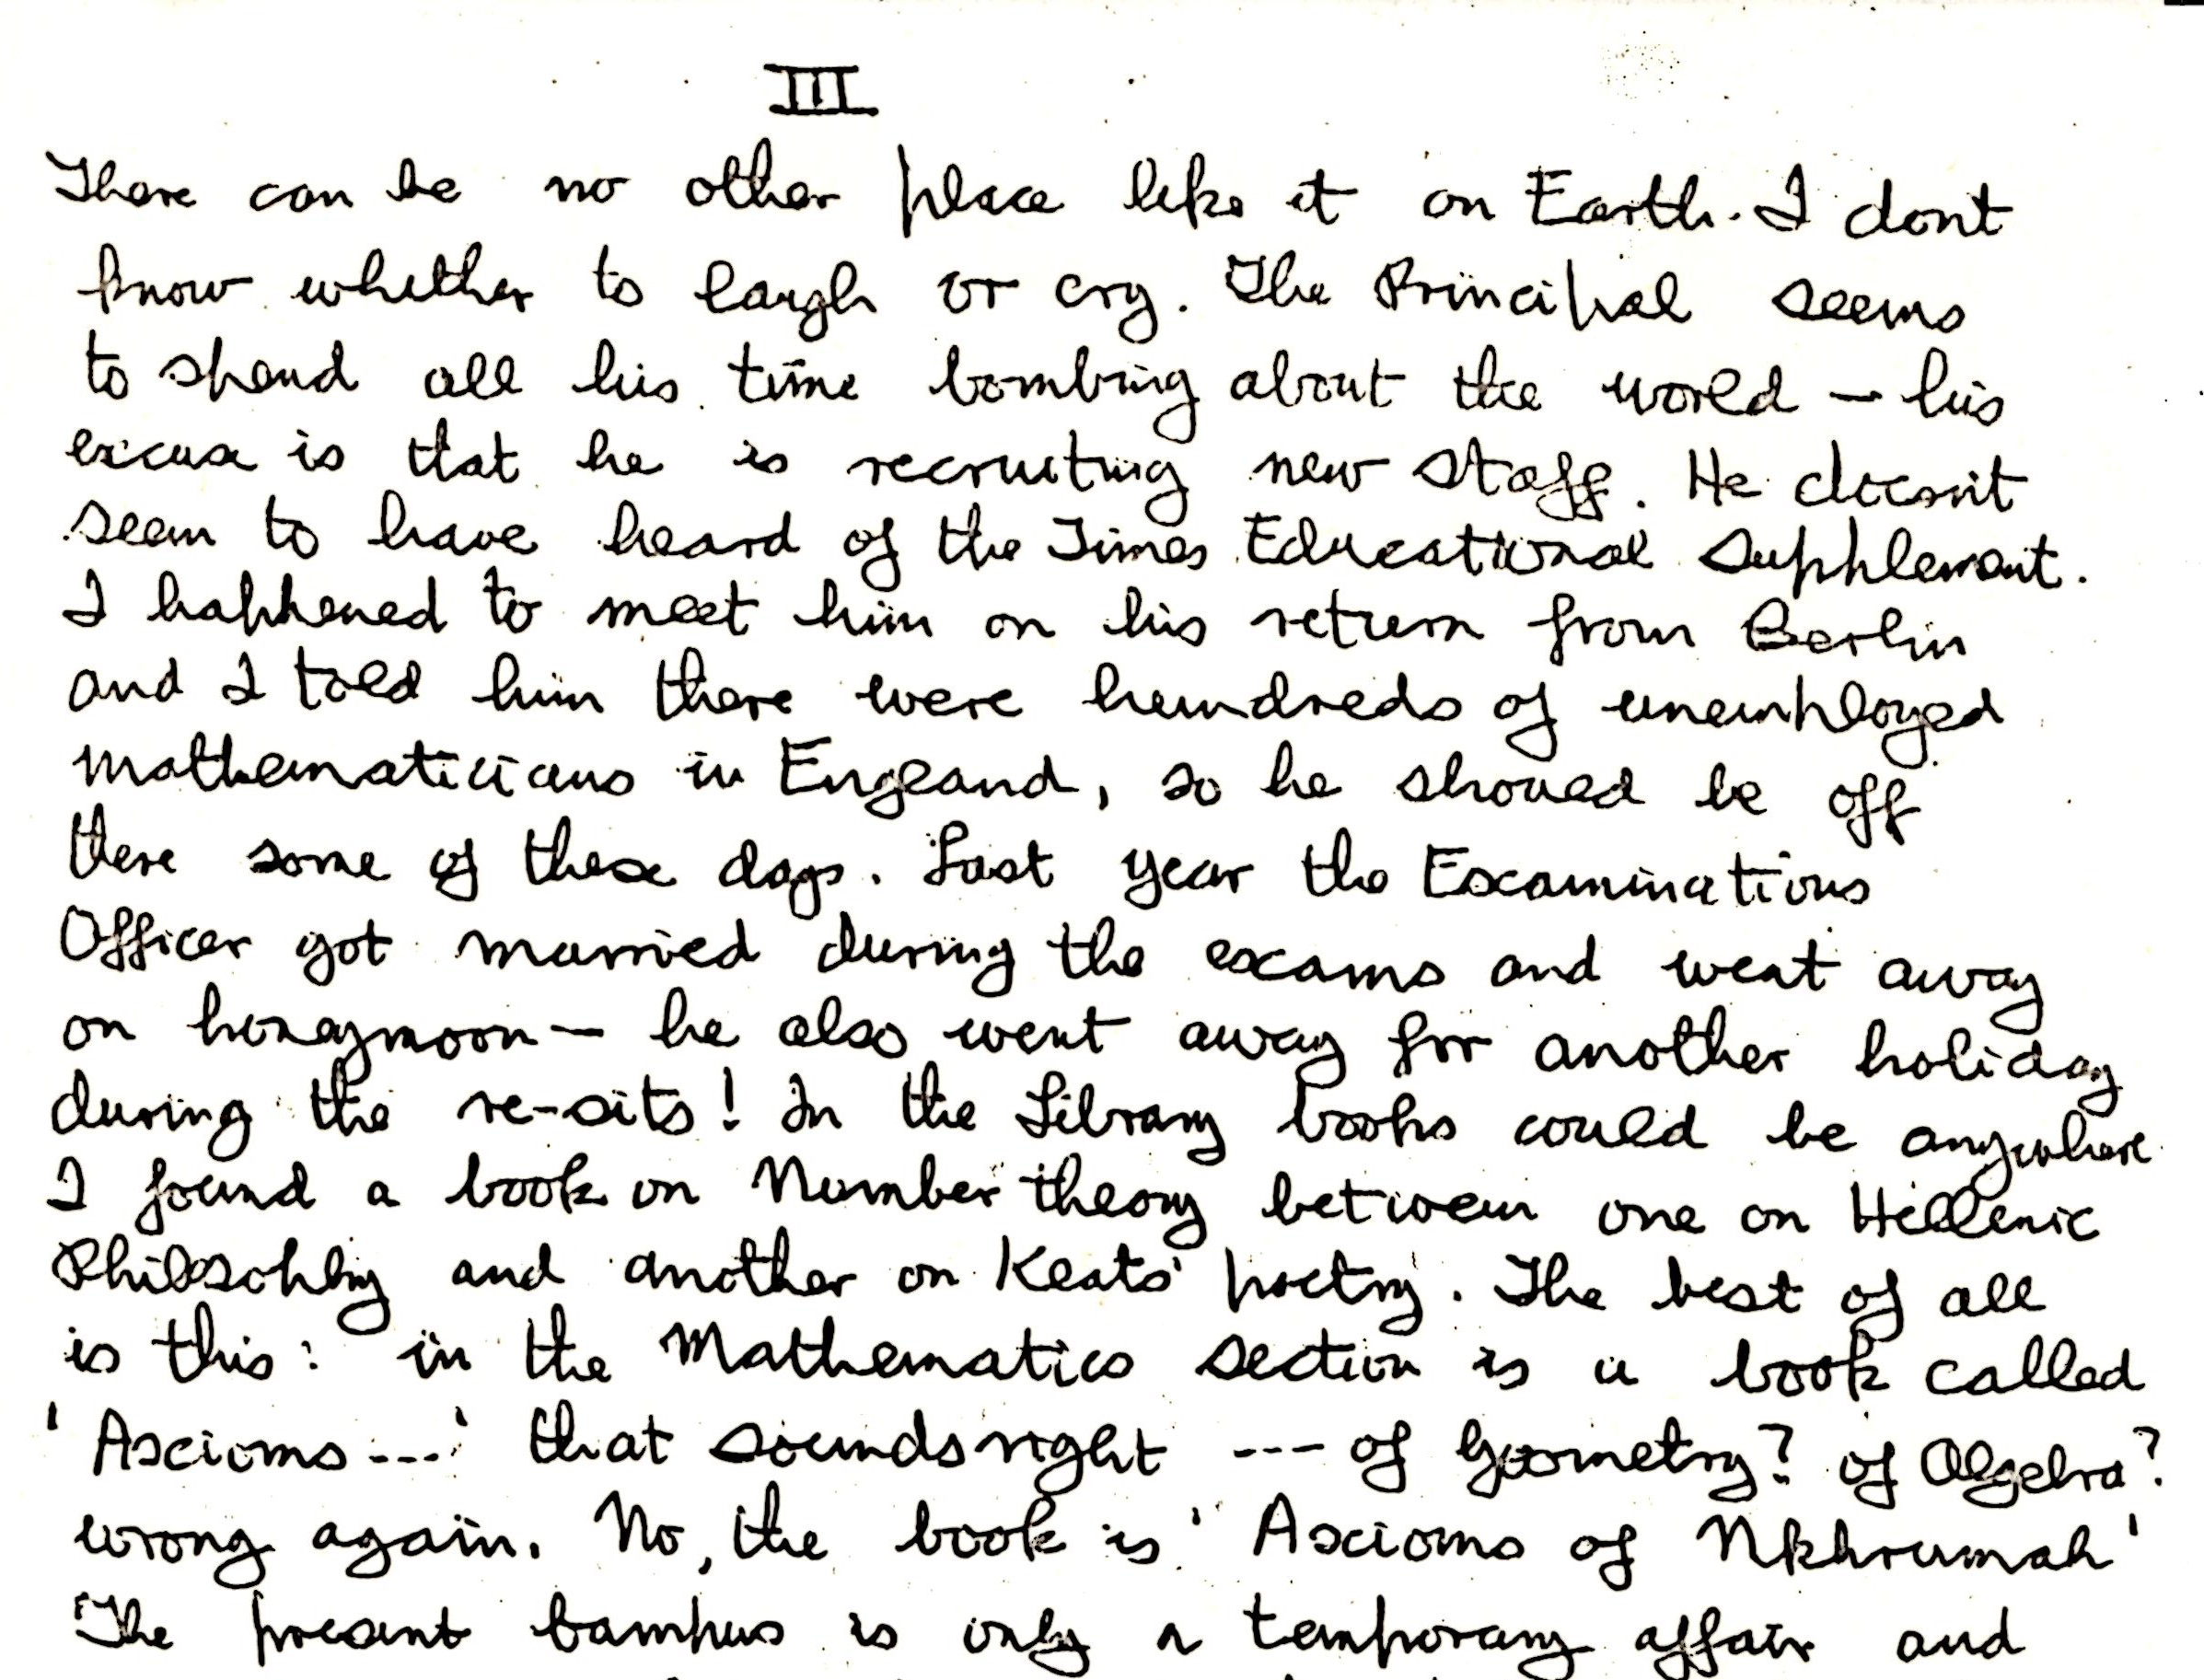 III
There can be no other place like it on Earth. I dont
know whether to laugh or cry. The Principal seems
to spend all his time bombing about the world – his
excuse is that he is recruiting new staff. He doesn't
seem to have heard of the Times Educational Supplement.
I happened to meet him on his return from Berlin
and I told him there were hundreds of unemployed
mathematicians in England, so he should be off
there some of these days. Last year the Examinations
Officer got married during the exams and went away
on honeymoon – he also went away for another holiday
during the re-sits! In the Library books could be anywhere.
I found a book on Number theory between one on Hellenic
Philosophy and another on Keats' poetry. The best of all
is this: in the Mathematics section is a book called
'Axioms ---' that sounds right --- of Geometry? of Algebra?
wrong again. No, the book is 'Axioms of Nkhrumah'
The present campus is only a temporary affair and